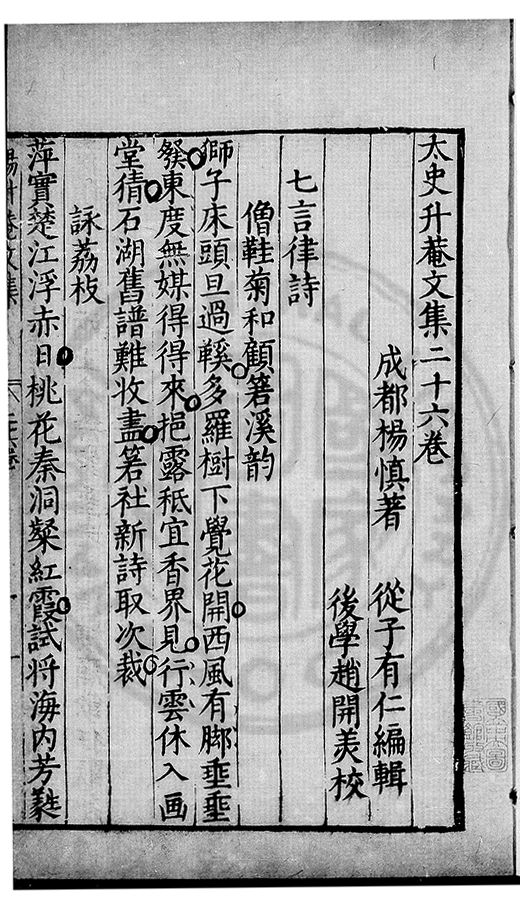 太史升菴文集二十六卷
成都楊慎著　從子有仁編輯
後學趙開美校
七言律詩
僧鞋菊和顧箬溪韵
獅子床頭旦過鞵多羅樹下覺花開西風有脚垂垂
發東度無媒得得來挹露秪宜香界見行雲休入画
堂猜石湖舊譜難收盡箬社新詩取次裁
詠荔枝
萍實楚江浮赤日桃花秦洞粲紅霞試将海内芳蕤